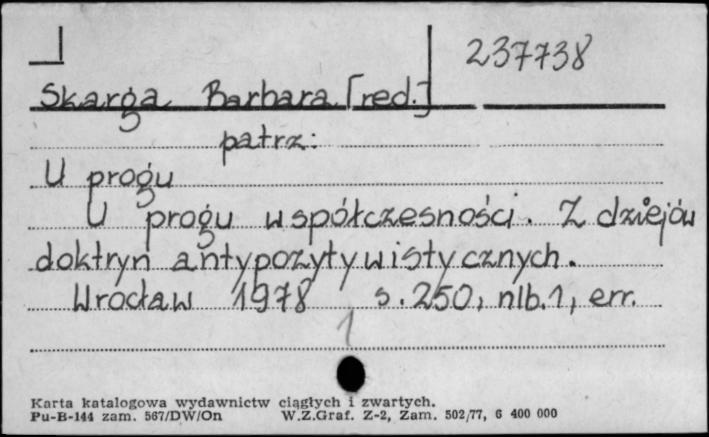 237738
Skarga Barbara [red.]
patrz:
U progu
U progu współczesności. Z dziejów
doktryn antypozytywistycznych.
Wrocław 1978 s. 250, nlb. 1, err.
1
Karta katalogowa wydawnictw ciągłych i zwartych.
Pu-B-144 zam. 567/DW/On W.Z.Graf. Z-2, Zam. 502/77, 6 400 000